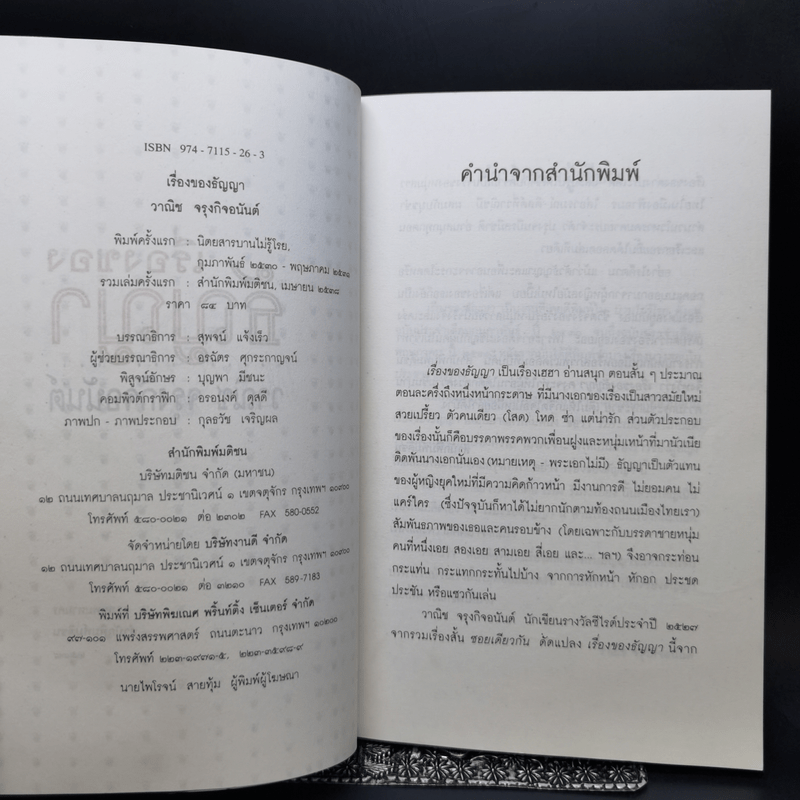 ISBN 974 - 7115 - 26 - 3
เรื่องของธัญญา
วาณิช จรุงกิจอนันต์
พิมพ์ครั้งแรก : นิตยสารบานไม่รู้โรย,
กุมภาพันธ์ ๒๕๓๐ - พฤษภาคม ๒๕๓๑
รวมเล่มครั้งแรก : สำนักพิมพ์มติชน, เมษายน ๒๕๓๘
ราคา ๘๔ บาท
บรรณาธิการ : สุพจน์ แจ้งเร็ว
ผู้ช่วยบรรณาธิการ : อรฉัตร ศุกระกาญจน์
พิสูจน์อักษร : บุญพา มีชนะ
คอมพิวต์กราฟิก : อรอนงค์ ดุสดี
ภาพปก - ภาพประกอบ : กุลธวัช เจริญผล
สำนักพิมพ์มติชน
บริษัทมติชน จำกัด (มหาชน)
๑๒ ถนนเทศบาลนฤมาล ประชานิเวศน์ ๑ เขตจตุจักร กรุงเทพฯ ๑๐๙๐๐
โทรศัพท์ ๕๘๐-๐๐๒๑ ต่อ ๒๓๐๒ FAX 580-0552
จัดจำหน่ายโดย บริษัทงานดี จำกัด
๑๒ ถนนเทศบาลนฤมาล ประชานิเวศน์ ๑ เขตจตุจักร กรุงเทพฯ ๑๐๙๐๐
โทรศัพท์ ๕๘๐-๐๐๒๑ ต่อ ๓๒๑๐ FAX 589-7183
พิมพ์ที่ บริษัทพิฆเณศ พริ้นท์ติ้ง เซ็นเตอร์ จำกัด
๙๙-๑๐๑ แพร่งสรรพศาสตร์ ถนนตะนาว กรุงเทพฯ ๑๐๒๐๐
โทรศัพท์ ๒๒๓-๑๙๗๑-๕, ๒๒๓-๓๕๙๘-๙
นายไพโรจน์ สายทุ้ม ผู้พิมพ์ผู้โฆษณา
คำนำจากสำนักพิมพ์
เรื่องของธัญญา เป็นเรื่องเฮฮา อ่านสนุก ตอนสั้น ๆ ประมาณ
ตอนละครึ่งถึงหนึ่งหน้ากระดาษ ที่มีนางเอกของเรื่องเป็นสาวสมัยใหม่
สวยเปรี้ยว ตัวคนเดียว (โสด) โหด ซ่า แต่น่ารัก ส่วนตัวประกอบ
ของเรื่องนั้นก็คือบรรดาพรรคพวกเพื่อนฝูงและหนุ่มเหน้าที่มานัวเนีย
ติดพันนางเอกนั่นเอง (หมายเหตุ - พระเอกไม่มี) ธัญญาเป็นตัวแทน
ของผู้หญิงยุคใหม่ที่มีความคิดก้าวหน้า มีงานการดี ไม่ยอมคน ไม่
แคร์ใคร (ซึ่งปัจจุบันก็หาได้ไม่ยากนักตามท้องถนนเมืองไทยเรา)
สัมพันธภาพของเธอและคนรอบข้าง (โดยเฉพาะกับบรรดาชายหนุ่ม
คนที่หนึ่งเอย สองเอย สามเอย สี่เอย และ... ฯลฯ) จึงอาจกระท่อน
กระแท่น กระแทกกระทั้นไปบ้าง จากการหักหน้า หักอก ประชด
ประชัน หรือแซวกันเล่น
วาณิช จรุงกิจอนันต์ นักเขียนรางวัลซีไรต์ประจำปี ๒๕๒๗
จากรวมเรื่องสั้น ซอยเดียวกัน ดัดแปลง เรื่องของธัญญา นี้จาก